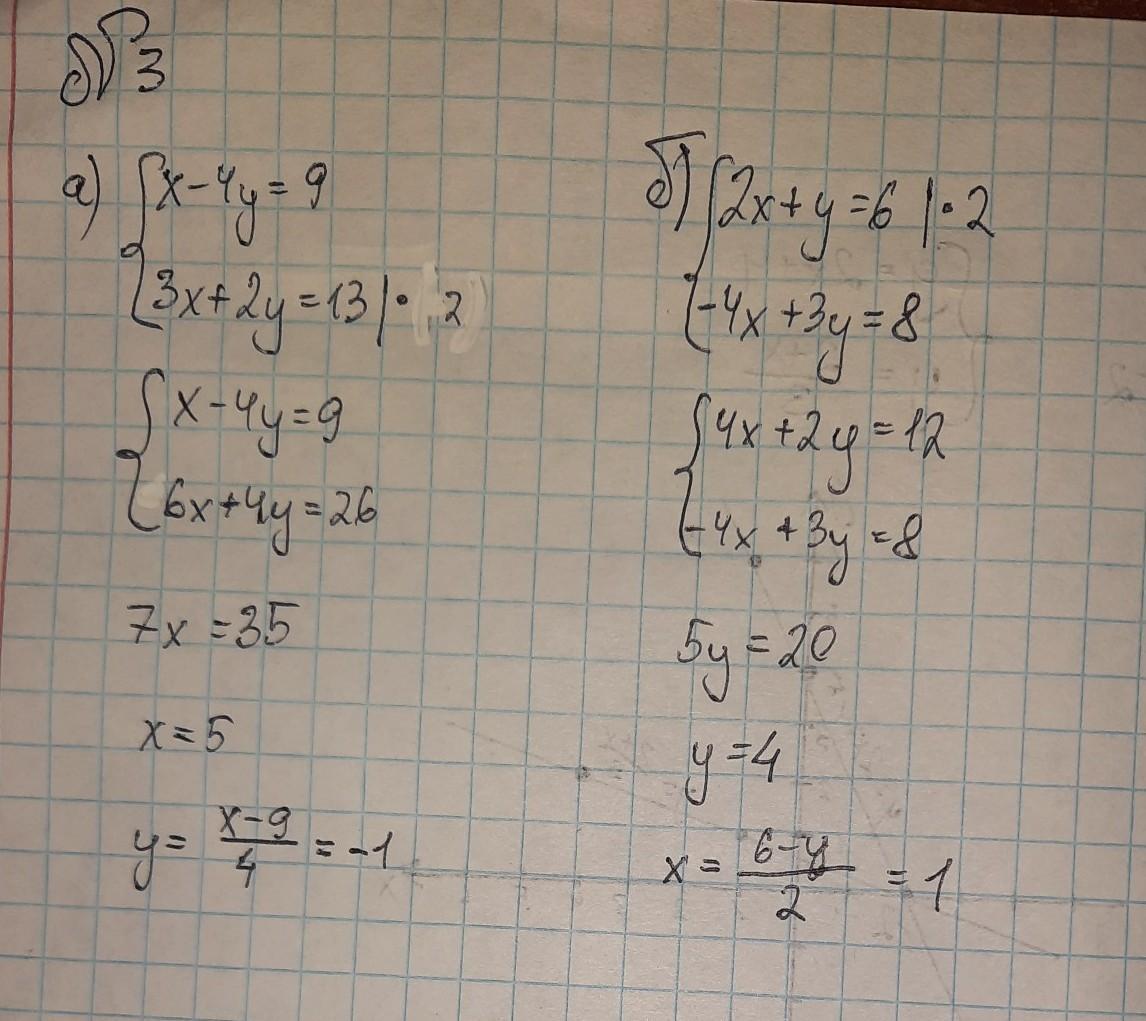 №3
а) { x-4y=9
3x+2y=13 | · 2
{ x-4y=9
6x+4y=26
7x=35
x=5
y= (x-9)/4 = -1
б) { 2x+y=6 | · 2
-4x+3y=8
{ 4x+2y=12
-4x+3y=8
5y=20
y=4
x= (6-y)/2 = 1